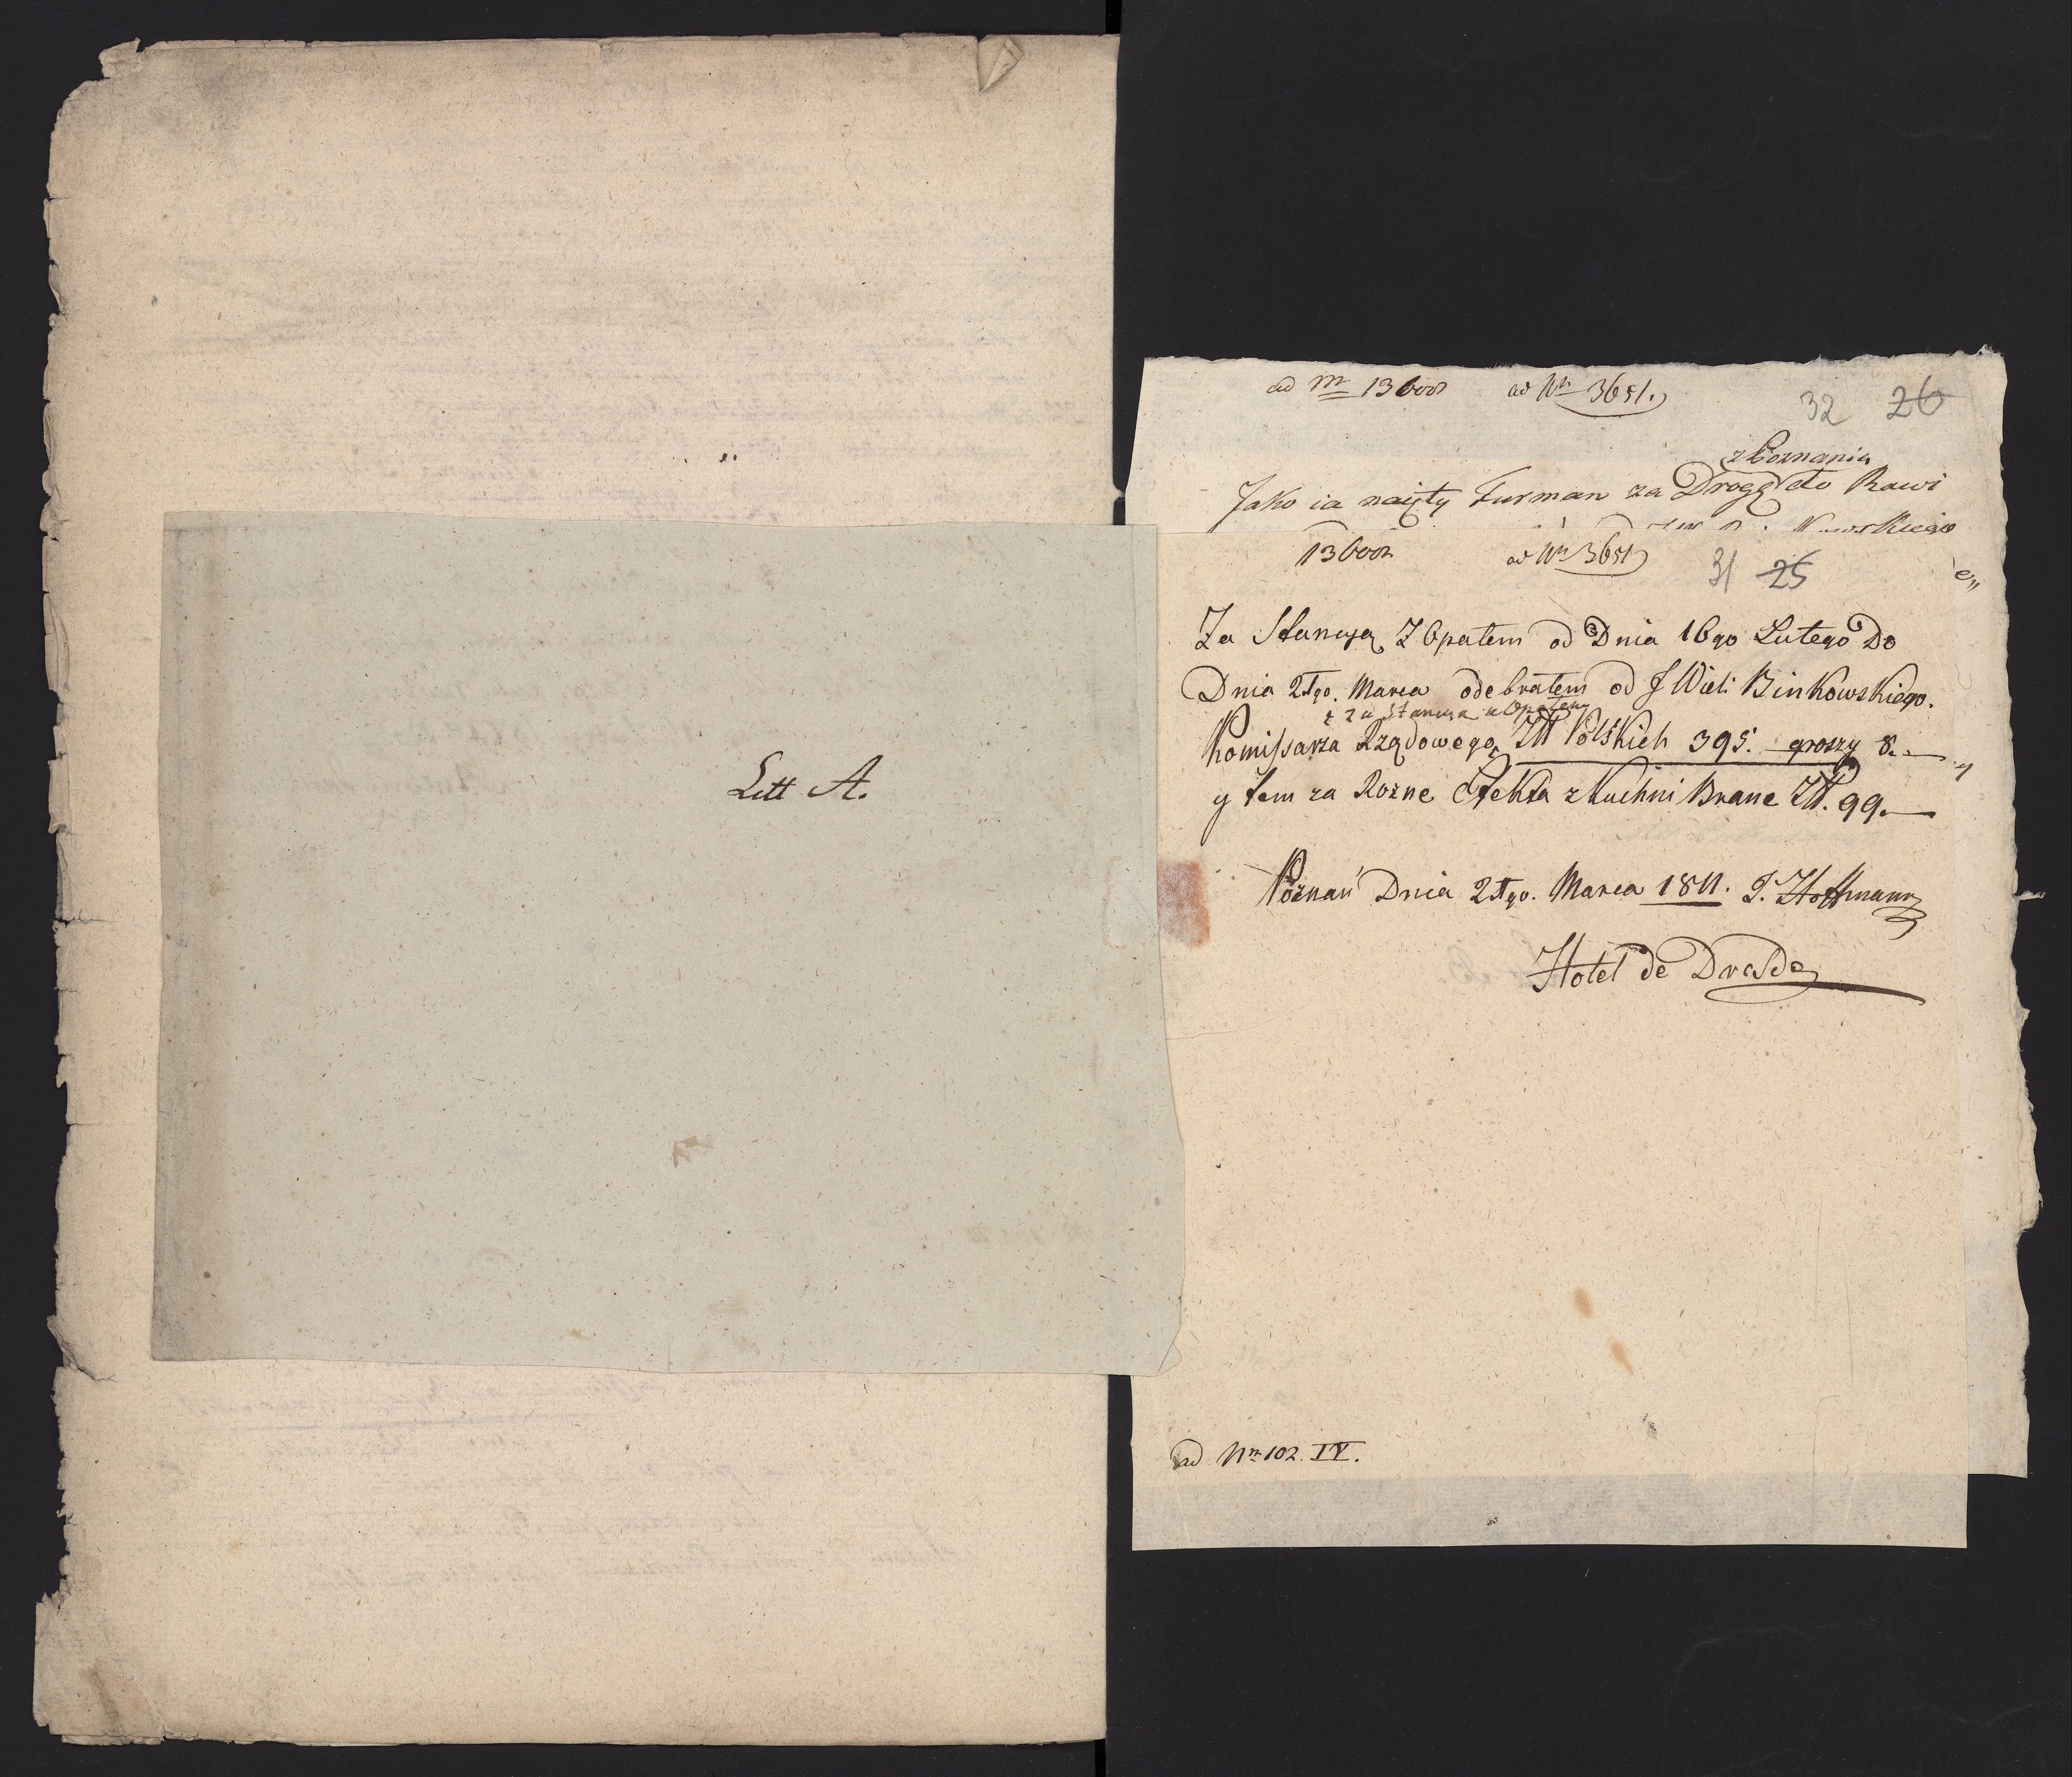 Litt A.
ad Nr 13600 ad Nr 3651.
32 26
z Poznania
Jako ia naięty Furman za Drogę do Rawi
13600 ad Nr 3651
31 25
Za Stancyą Z Opałem od Dnia 16go Lutego Do
Dnia 21go. Marca odebrałem od J Wieli Binkowskiego.
z za Stancyą z Opałem
Komissarza Rządowego Złt Polskich 395. groszy 8.
y tem za Rozne Efekta z Kuchni Brane Złt. 99.
Poznań Dnia 21go. Marca 1811. J. Hoffmann
Hotel de Dresde
ad Nr 102. IV.